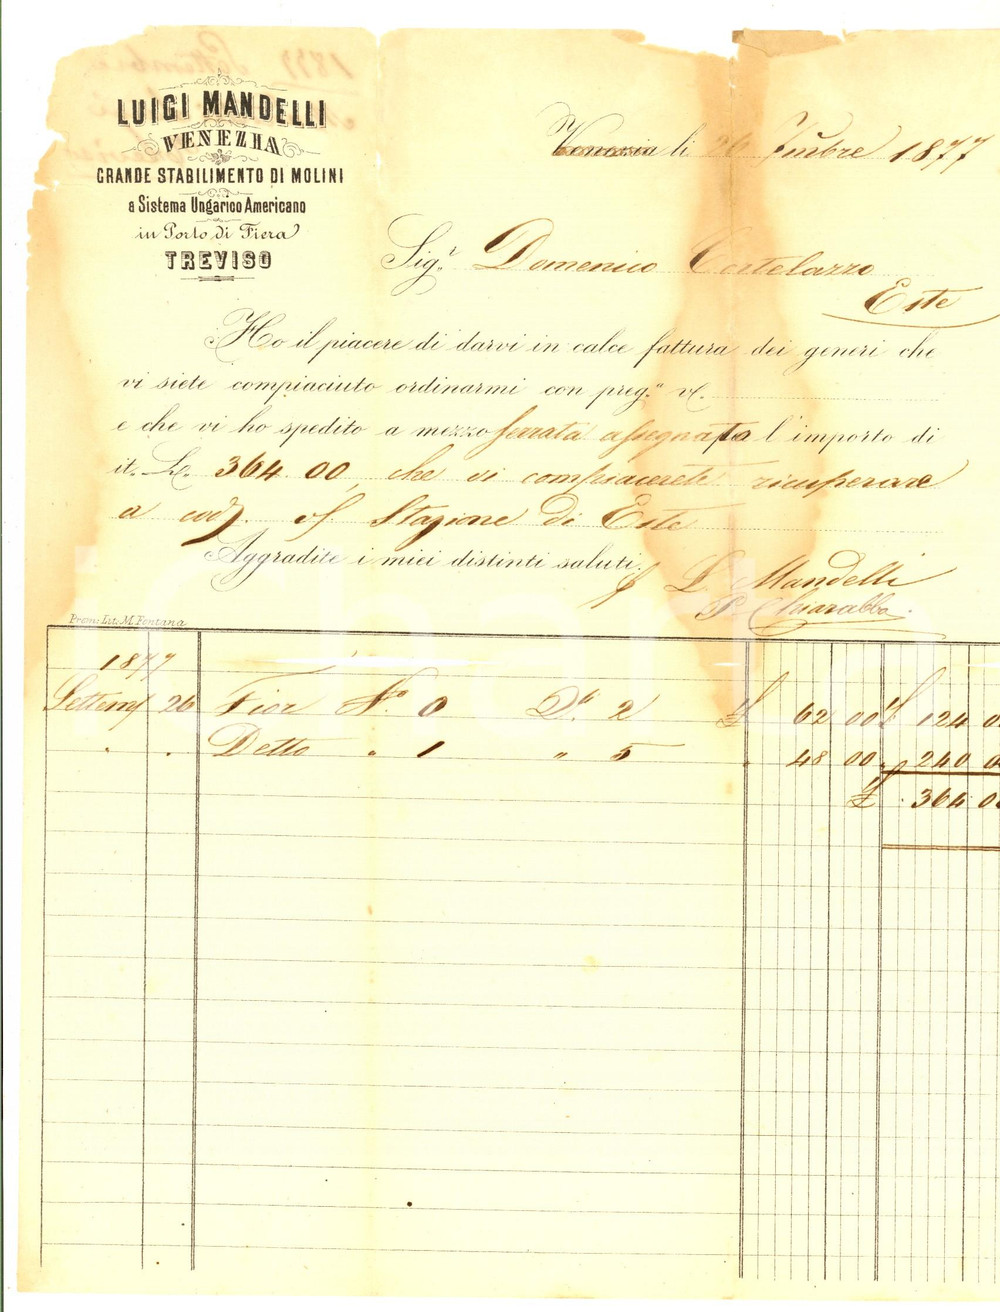 LUIGI MANDELLI
VENEZIA
GRANDE STABILIMENTO DI MOLINI
a Sistema Ungarico Americano
in Porto di Fiera
TREVISO
Venezia li 26 7mbre 1877
Sigr. Domenico Cortelazzo
Este
Ho il piacere di darvi in calce fattura dei generi che
vi siete compiaciuto ordinarmi con preg.a v/.
e che vi ho spedito a mezzo ferrata assegnata l'importo di
it. L. 364.00, che vi compiacerete ricuperare
a Stazione di Este
Aggradite i miei distinti saluti.
L. Mandelli
P. Chiarabba
Prem: Lit: M. Fontana
1877
Settem 26 Fior No. 0 2 £ 62 00 £ 124 0
" " Detto " 1 " 5 " 48 00 " 240 0
£ 364 00